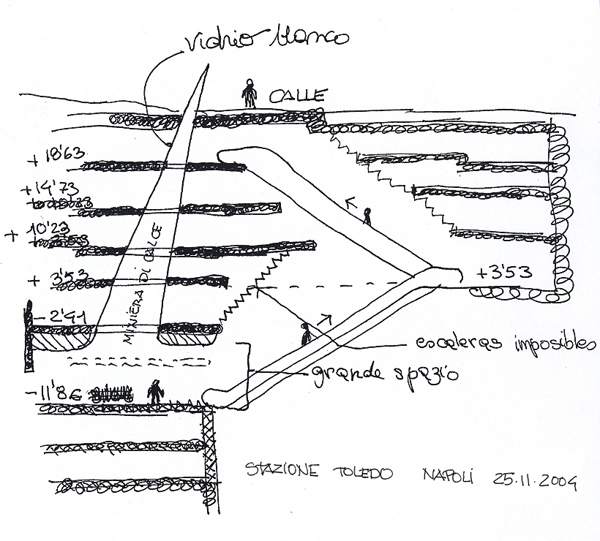 vidrio blanco
CALLE
+ 18'63
+ 14'73
+ 10'23
+ 3'53
- 2'91
- 11'86
MINIERA DI CALCE
+3'53
escaleras imposibles
grande spazio
STAZIONE TOLEDO NAPOLI 25.11.2004